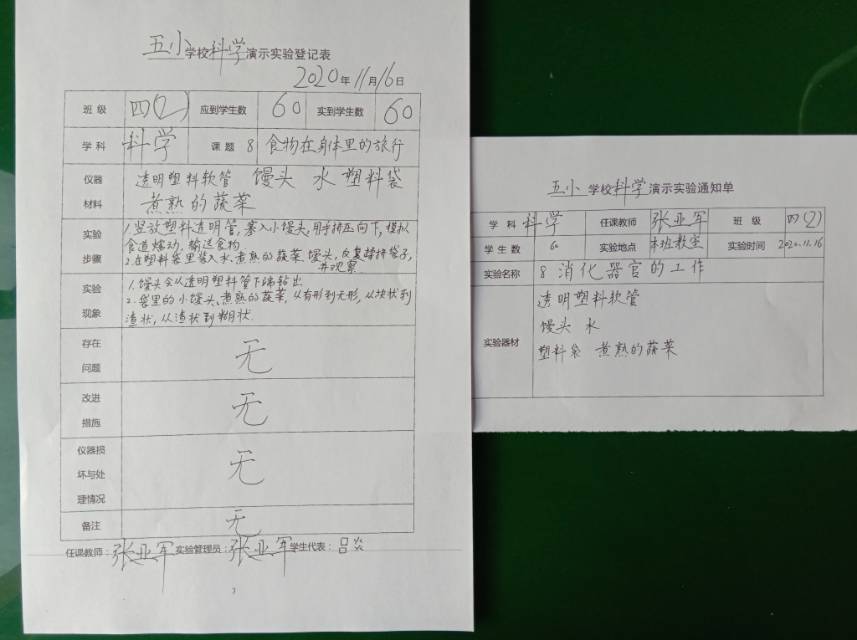 五小学校科学演示实验登记表
2020年11月16日
班级 四(2) 应到学生数 60 实到学生数 60
学科 科学 课题 8 食物在身体里的旅行
仪器材料 透明塑料软管 馒头 水 塑料袋
煮熟的蔬菜
实验步骤 1.竖放塑料透明管,塞入小馒头,用手挤压向下,模拟
食道蠕动,输送食物.
2.在塑料袋里装入水.煮熟的蔬菜.馒头,反复揉挤袋子,
并观察
实验现象 1.馒头会从透明塑料管下端钻出
2.袋里的小馒头,煮熟的蔬菜,从有形到无形,从块状到
渣状,从渣状到糊状.
存在问题 无
改进措施 无
仪器损坏与处理情况 无
备注 无
任课教师:张亚军 实验管理员:张亚军 学生代表:吕炎
3
五小学校科学演示实验通知单
学科 科学 任课教师 张亚军 班级 四(2)
学生数 60 实验地点 本班教室 实验时间 2020.11.16
实验名称 8 消化器官的工作
实验器材 透明塑料软管
馒头 水
塑料袋 煮熟的蔬菜